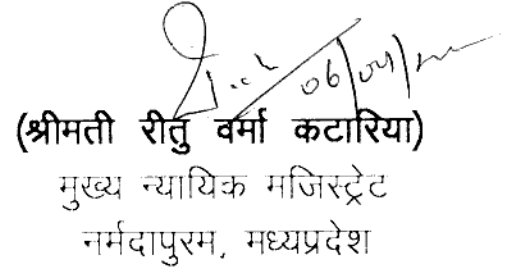 06/09/
(श्रीमती रीतु वर्मा कटारिया)
मुख्य न्यायिक मजिस्ट्रेट
नर्मदापुरम, मध्यप्रदेश